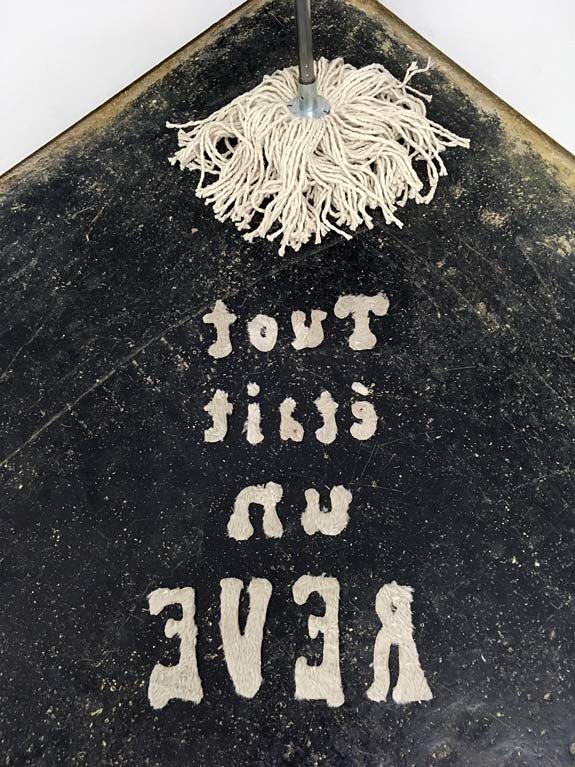 Tout
était
un
REVE